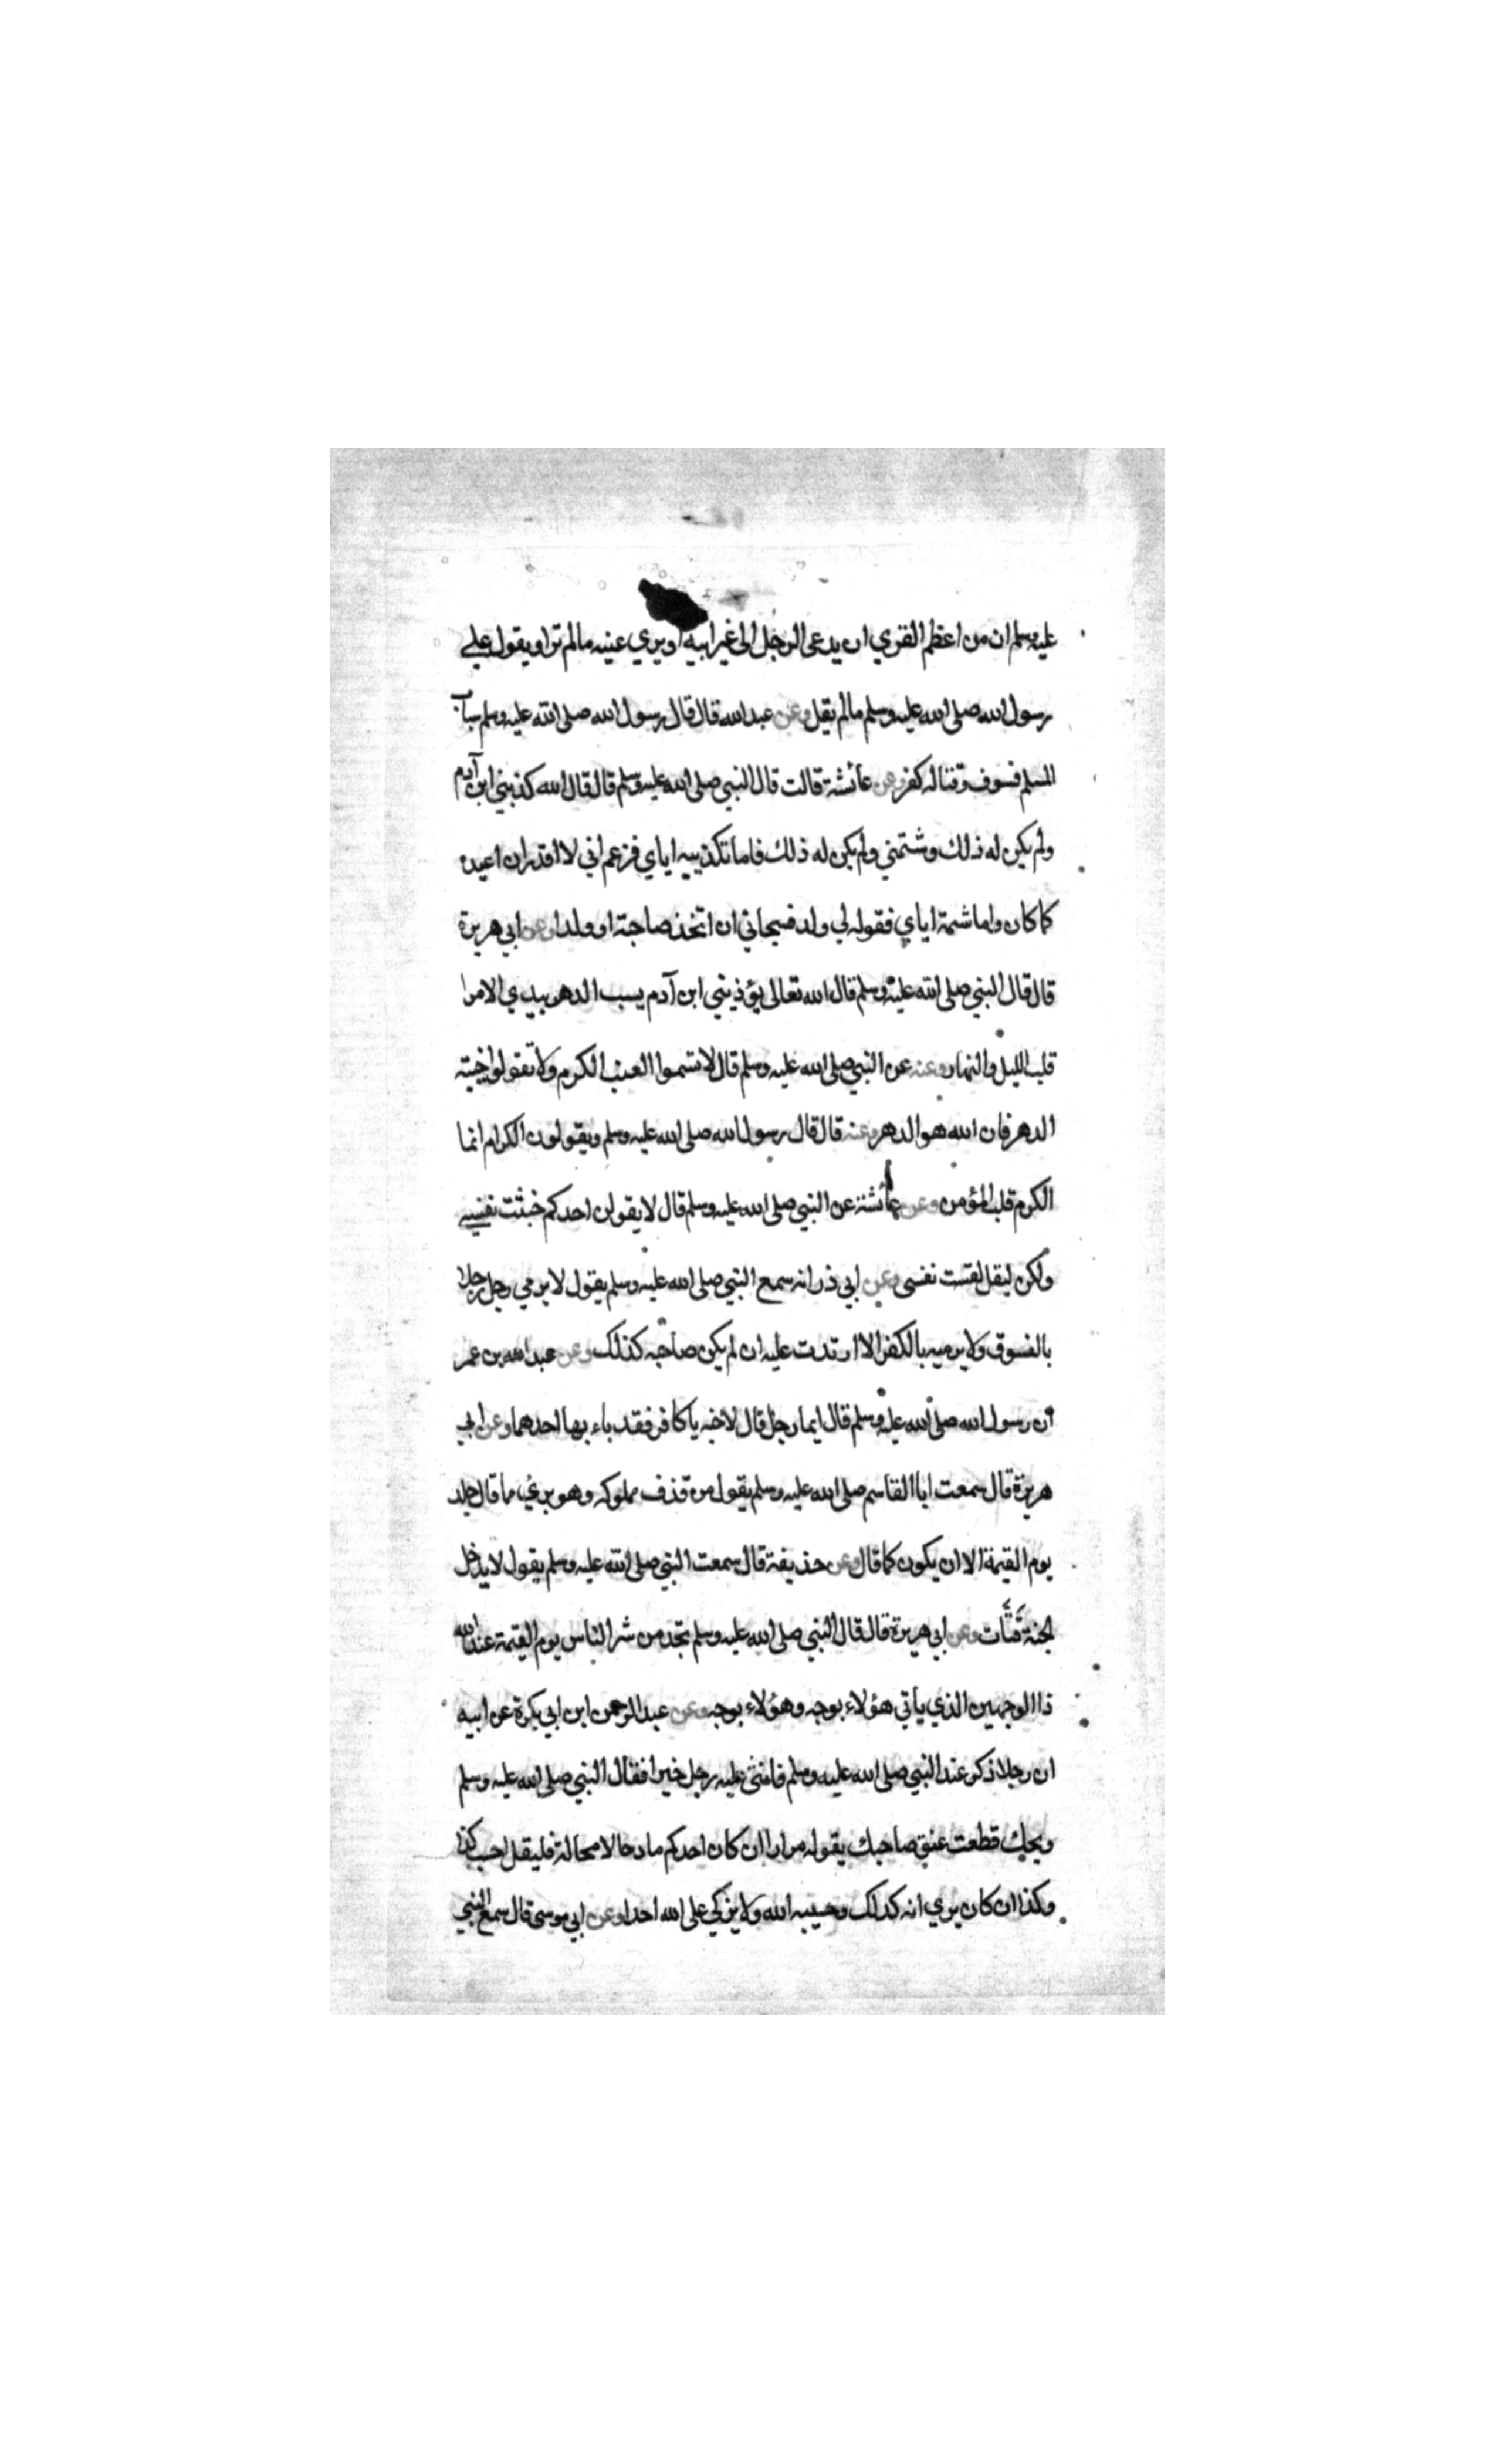 عليه وسلم ان من اعظم الفري ان يدعى الرجل الى غير ابيه او يري عينه مالم تر او يقول على
رسول الله صلى الله عليه وسلم مالم يقل وعن عبدالله قال قال رسول الله صلى الله عليه وسلم سباب
المسلم فسوف وقتاله كفر وعن عائشة قالت قال النبي صلى الله عليه وسلم قال قال الله كذبني ابن آدم
ولم يكن له ذلك وشتمني ولم يكن له ذلك فاما تكذيبه اياي فزعم اني لا اقدر ان اعيده
كما كان واما شتمه اياي فقوله لي ولد فسبحاني ان اتخذ صاحبة او ولدا وعن ابي هريرة
قال قال النبي صلى الله عليه وسلم قال الله تعالى يؤذيني ابن آدم يسب الدهر بيدي الامر ا
قلب الليل والنهار وعنه عن النبي صلى الله عليه وسلم قال لا تسموا العنب الكرم ولا تقولوا خيبة
الدهر فان الله هو الدهر وعنه قال قال رسول الله صلى الله عليه وسلم ويقولون الكرام انما
الكرم قلب المؤمن وعن عائشة عن النبي صلى الله عليه وسلم قال لا يقولن احدكم خبثت نفسي
ولكن ليقل لقست نفسى وعن ابي ذر انه سمع النبي صلى الله عليه وسلم يقول لا يرمي رجل رجلا
بالفسوق ولا يرميه بالكفر الا ارتدت عليه ان لم يكن صاحبه كذلك وعن عبدالله بن عمر
ان رسول الله صلى الله عليه وسلم قال ايما رجل قال لاخيه يا كافر فقد باء بها احدهما وعن ابي
هريرة قال سمعت ابا القاسم صلى الله عليه وسلم يقول من قذف مملوكه وهو بريء مما قال جلد
يوم القيمة الا ان يكون كما قال وعن حذيفة قال سمعت النبي صلى الله عليه وسلم يقول لا يدخل
الجنة قَتَّات وعن ابي هريرة قال قال النبي صلى الله عليه وسلم تجد من شر الناس يوم القيمة عند الله
ذا الوجهين الذي يأتي هؤلاء بوجه وهؤلاء بوجه وعن عبد الرحمن ابن ابي بكرة عن ابيه
ان رجلا ذكر عند النبي صلى الله عليه وسلم فاثنى عليه رجل خيرا فقال النبي صلى الله عليه وسلم
ويحك قطعت عنق صاحبك يقوله مرارا ان كان احدكم مادحا لا محالة فليقل احسب كذا
وكذا ان كان يري انه كذلك وحسيبه الله ولا يزكي على الله احدا وعن ابي موسى قال سمع النبي